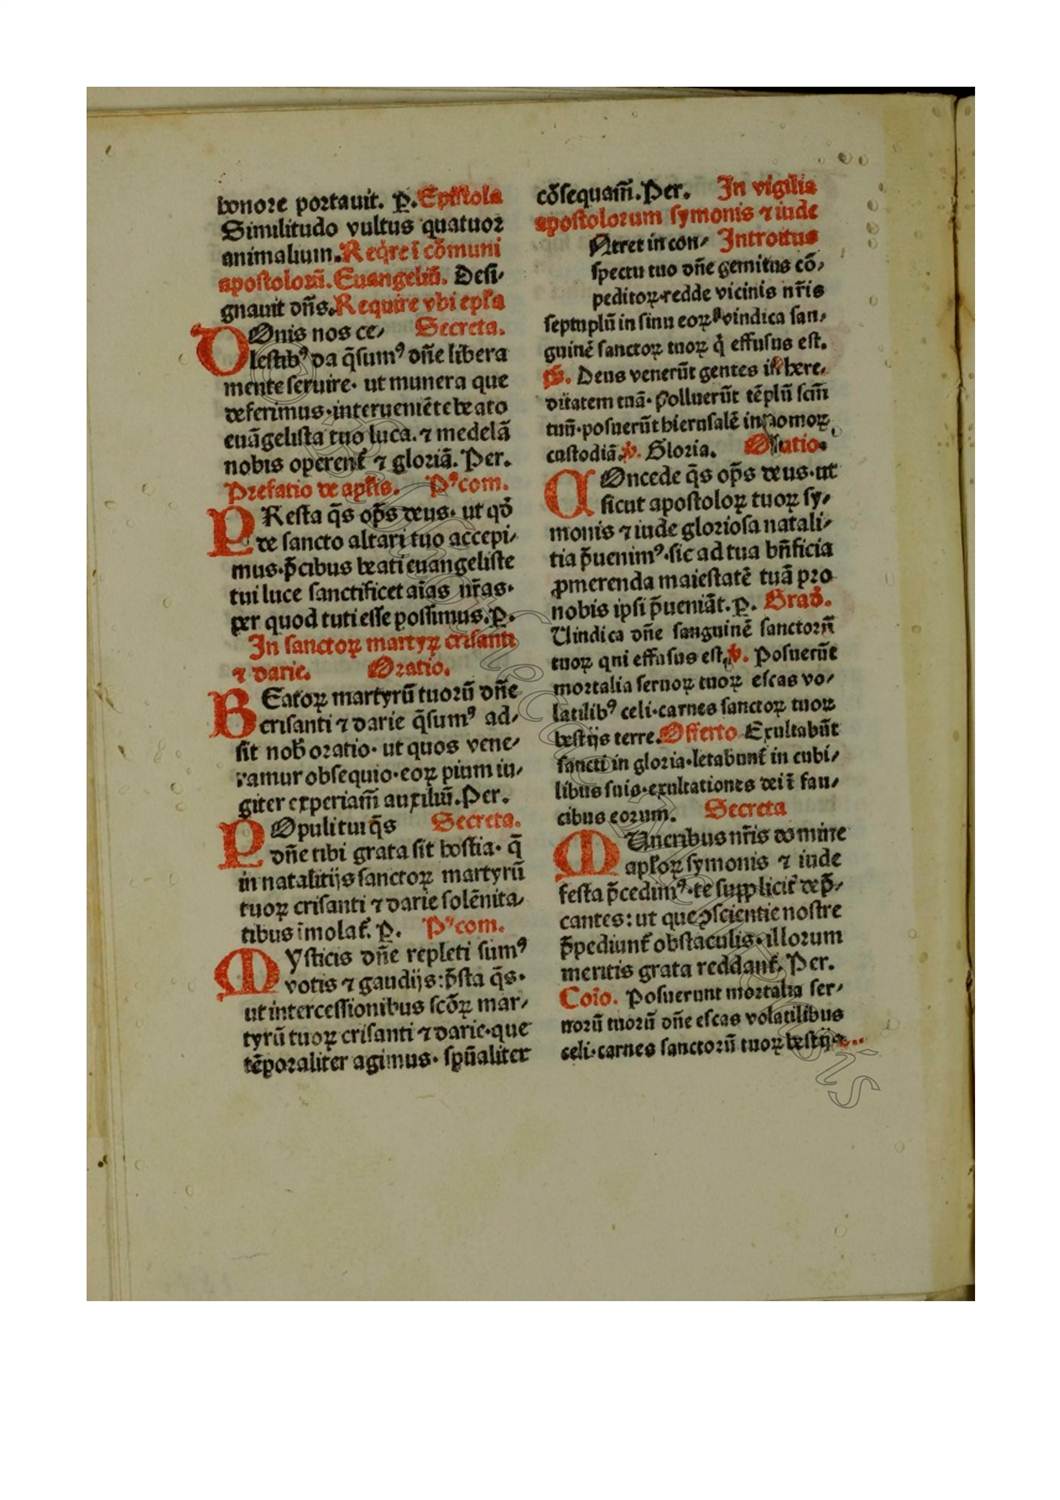 honore portauit. ꝑ. Epistola
Similitudo vultus quatuor
animalium. Reqͥre ī cōmuni
apostoloꝛū. Euangeliū. Desi⸗
gnauit dn̄s. Require vbi epl̄a
DOnis nos ce⸗ Secreta.
lestibꝰ da q̄sumꝰ dn̄e libera
mente seruire· ut munera que
deferimus·interueniēte beato
euāgelista tuo luca. ⁊ medelā
nobis operent᷑ ⁊ gloriā. Per.
Prefatio de apl̄is. Pꝰcom.
PResta q̄s op̄s deus· ut qđ
de sancto altari tuo accepi⸗
mus·p̄cibus beati euangeliste
tui luce sanctificet aīas nr̄as·
per quod tuti esse possimus. ꝑ.
In sanctoꝝ martyꝝ crisanti
⁊ darie. Oratio.
BEatoꝝ martyrū tuorū dn̄e
crisanti ⁊ darie q̄sumꝰ ad⸗
sit nob̄ oratio· ut quos vene⸗
ramur obsequio·eoꝝ pium iu⸗
giter experiam̄ auxiliū. Per.
POpuli tui q̄s Secreta.
dn̄e tibi grata sit hostia· q̄
in natalitijs sanctoꝝ martyrū
tuoꝝ crisanti ⁊ darie solēnita⸗
tibus īmolat᷑. ꝑ. Pꝰcom.
MYsticis dn̄e repleti sumꝰ
votis ⁊ gaudijs: p̄sta q̄s·
ut intercessionibus scōꝝ mar⸗
tyrū tuoꝝ crisanti ⁊ darie·que
tēporaliter agimus· sp̄ualiter
cōsequam̄. Per. In vigilia
apostolorum symonis ⁊ iude
Ntret in con⸗ Introitus
spectu tuo dn̄e gemitus cō⸗
peditoꝝ·redde vicinis nr̄is
septuplū in sinu eoꝝ vindica san⸗
guinē sanctoꝝ tuoꝝ q̄ effusus est.
p̄s. Deus venerūt gentes in here⸗
ditatem tuā· polluerūt tēplū scm̄
tuū·posuerūt hierusalē in pomoꝝ
custodiā. v. Gloria. Oratio.
COncede q̄s op̄s deus·ut
sicut apostoloꝝ tuoꝝ sy⸗
monis ⁊ iude gloriosa natali⸗
tia p̄uenimꝰ·sic ad tua bn̄ficia
ꝓmerenda maiestatē tuā pro
nobis ipsi p̄ueniāt. ꝑ. Grad̄.
Uindica dn̄e sanguinē sanctorū
tuoꝝ qui effusus est. v. Posuerūt
mortalia seruoꝝ tuoꝝ escas vo⸗
latilibꝰ celi·carnes sanctoꝝ tuoꝝ
bestijs terre. Offerto Exultabūt
sancti in gloria·letabunt᷑ in cubi⸗
libus suis·exultationes dei ī fau⸗
cibus eorum. Secreta
MUneribus nr̄is domine
apl̄oꝝ symonis ⁊ iude
festa p̄cedimꝰ·te supplicit᷑ dep̄⸗
cantes: ut que ꝯscientie nostre
p̄pediunt᷑ obstaculis·illorum
meritis grata reddant᷑. Per.
Coīo. Posuerunt mortalia ser⸗
uorū tuorū dn̄e escas volatilibus
celi·carnes sanctorū tuoꝝ bestijs